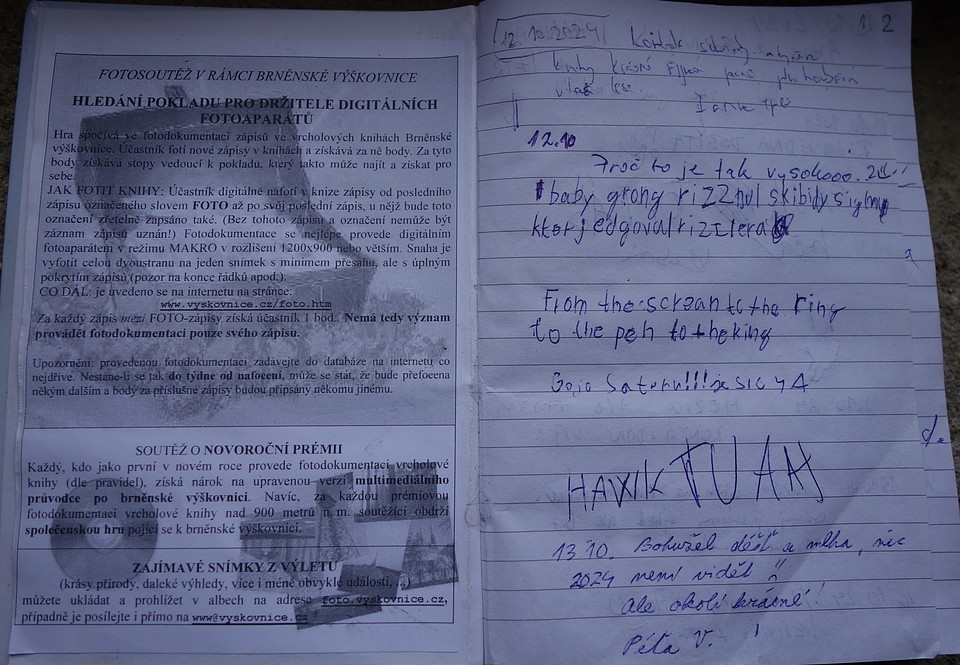 FOTOSOUTĚŽ V RÁMCI BRNĚNSKÉ VÝŠKOVNICE
HLEDÁNÍ POKLADU PRO DRŽITELE DIGITÁLNÍCH
FOTOAPARÁTŮ
Hra spočívá ve fotodokumentaci zápisů ve vrcholových knihách Brněnské
výškovnice. Účastník fotí nové zápisy v knihách a získává za ně body. Za tyto
body získává stopy vedoucí k pokladu, který takto může najít a získat pro
sebe.
JAK FOTIT KNIHY: Účastník digitálně nafotí v knize zápisy od posledního
zápisu označeného slovem FOTO až po svůj poslední zápis, u nějž bude toto
označení zřetelně zapsáno také. (Bez tohoto zápisu a označení nemůže být
záznam zápisů uznán!) Fotodokumentace se nejlépe provede digitálním
fotoaparátem v režimu MAKRO v rozlišení 1200x900 nebo větším. Snaha je
vyfotit celou dvoustranu na jeden snímek s mínimem přesahu, ale s úplným
pokrytím zápisů (pozor na konce řádků apod.).
CO DÁL: je uvedeno se na internetu na stránce:
www.vyskovnice.cz/foto.htm
Za každý zápis mezi FOTO-zápisy získá účastník 1 bod. Nemá tedy význam
provádět fotodokumentaci pouze svého zápisu.
Upozornění: provedenou fotodokumentaci zadávejte do databáze na internetu co
nejdříve. Nestane-li se tak do týdne od nafocení, může se stát, že bude přefocena
někým dalším a body za příslušné zápisy budou připsány někomu jinému.
SOUTĚŽ O NOVOROČNÍ PRÉMII
Každý, kdo jako první v novém roce provede fotodokumentaci vrcholové
knihy (dle pravidel), získá nárok na upravenou verzi multimediálního
průvodce po brněnské výškovnici. Navíc, za každou prémiovou
fotodokumentaci vrcholové knihy nad 900 metrů n. m. soutěžící obdrží
společenskou hru pojící se k brněnské výškovnici.
ZAJÍMAVÉ SNÍMKY Z VÝLETŮ
(krásy přírody, daleké výhledy, více i méně obvyklé události, ...)
můžete ukládat a prohlížet v albech na adrese foto.vyskovnice.cz,
případně je posílejte i přímo na www@vyskovnice.cz
12
12.10.2024
knihy
12.10
Proč to je tak vysokooo.
baby grong rizznul skibidy sigmu
kterj edgoval rizzlera
From the screan to the ring
to the pen to the king
Gojo Satoru!!!
HAWK TUAH
13 10. Bohužel déšť a mlha, nic
2024 není vidět !!
Ale okolí krásné!
Péťa V.